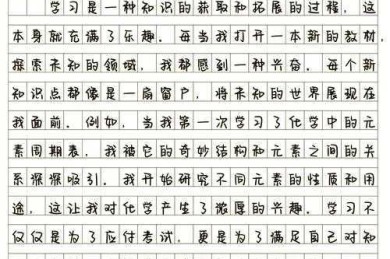 学习是一种知识的获取和拓展的过程，这
本身就充满了乐趣。每当我打开一本新的教材，
探索未知的领域，我都感到一种兴奋。每个新
知识点都像是一扇窗户，将未知的世界展现在
我面前。例如，当我第一次学习了化学中的元
素周期表，我被它的奇妙结构和元素之间的关
系深深吸引。我开始研究不同元素的性质和用
途，这让我对化学产生了浓厚的兴趣。学习不
仅仅是为了应付考试，更是为了满足自己对知